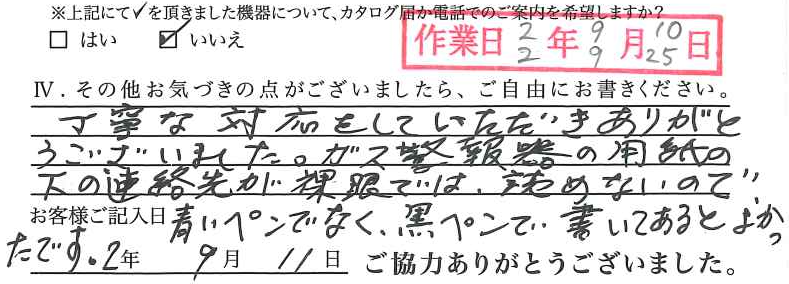 ※上記にて✓を頂きました機器について、カタログ届か電話でのご案内を希望しますか?
□ はい ☑ いいえ
作業日 2 年 9 月 10 日
2 9 25
Ⅳ.その他お気づきの点がございましたら、ご自由にお書きください。
丁寧な対応をしていただきありがと
うございました。ガス警報器の用紙の
下の連絡先が裸眼では、読めないので
お客様ご記入日 青いペンでなく、黒ペンで書いてあるとよかっ
たです。2年 9月 11日 ご協力ありがとうございました。